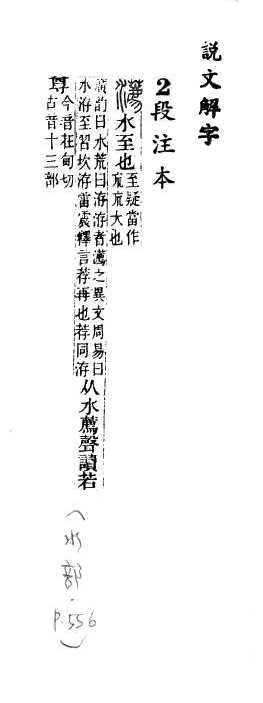 說文解字
2段注本
瀳水至也至疑當作㡿㡿大也
廣韵曰水荒曰洊洊者瀳之異文周易曰
水洊至習坎洊雷震釋言荐再也荐同洊从水薦聲讀若
尊今音在甸切古音十三部
(水部.P.556)